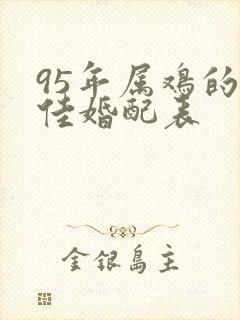 95年属鸡的
佳婚配表
金银岛主